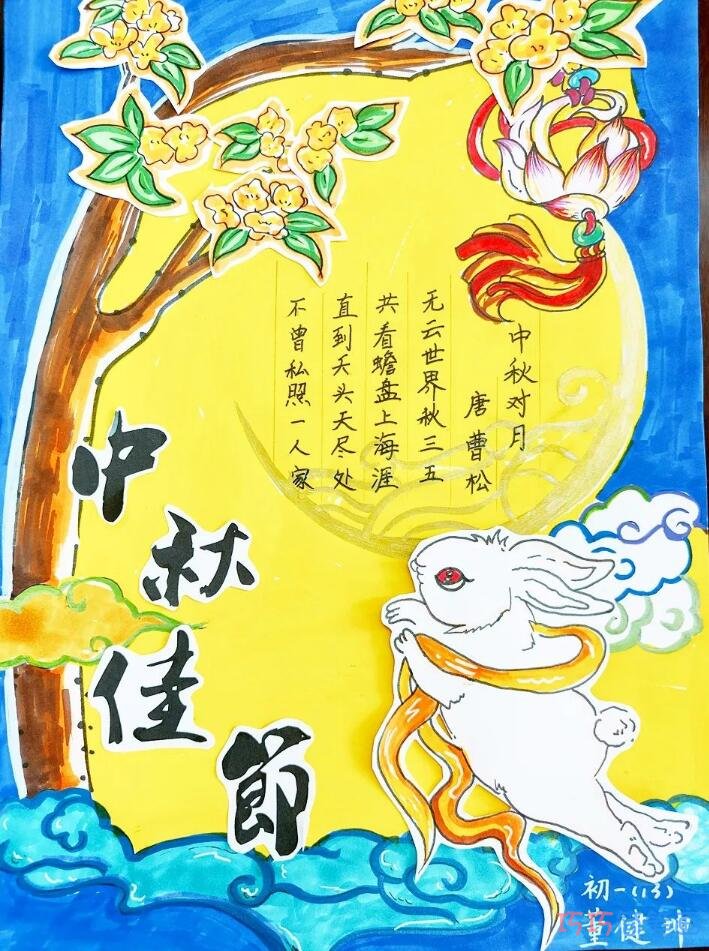 中秋对月
唐曹松
无云世界秋三五
共看蟾盘上海涯
直到天头天尽处
不曾私照一人家
中秋佳節
初一(13)
董健